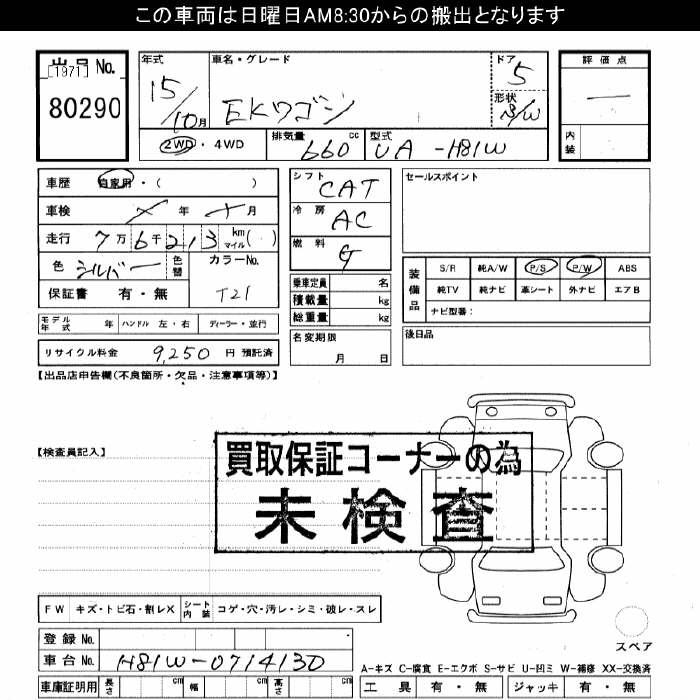 この車両は日曜日AM8:30からの搬出となります
出品No.
[1971]
80290
年式
15/10月
車名・グレード
EKワゴン
ドア
5
形状
S/W
評価点
—
内装
2WD・4WD
排気量 660 cc
型式 UA-H81W
車歴 自家用・( )
車検 メ 年 ナ 月
走行 7万6千213 km マイル( )
色 シルバー 色替
カラーNo. T21
保証書 有・無
シフト CAT
冷房 AC
燃料 G
乗車定員 名
積載量 kg
総重量 kg
名変期限
月 日
セールスポイント
装備品
S/R 純A/W P/S P/W ABS
純TV 純ナビ 革シート 外ナビ エアB
ナビ型番:
後日品
モデル年式 年 ハンドル 左・右 ディーラー・並行
リサイクル料金 9,250 円 預託済
【出品店申告欄(不良箇所・欠品・注意事項等)】
【検査員記入】
買取保証コーナーの為
未検査
FW キズ・トビ石・割レX シート内装 コゲ・穴・汚レ・シミ・破レ・スレ
スペア
登録No.
車台No. H81W-0714130
A-キズ C-腐食 E-エクボ S-サビ U-凹ミ W-補修 XX-交換済
車庫証明用 長さ cm 幅 cm 高さ cm
工具 有・無 ジャッキ 有・無